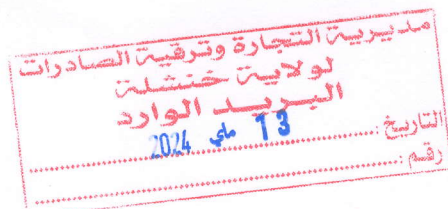 مديرية التجارة وترقية الصادرات
لولاية خنشلة
البريد الوارد
التاريخ : 13 ماي 2024
رقم :